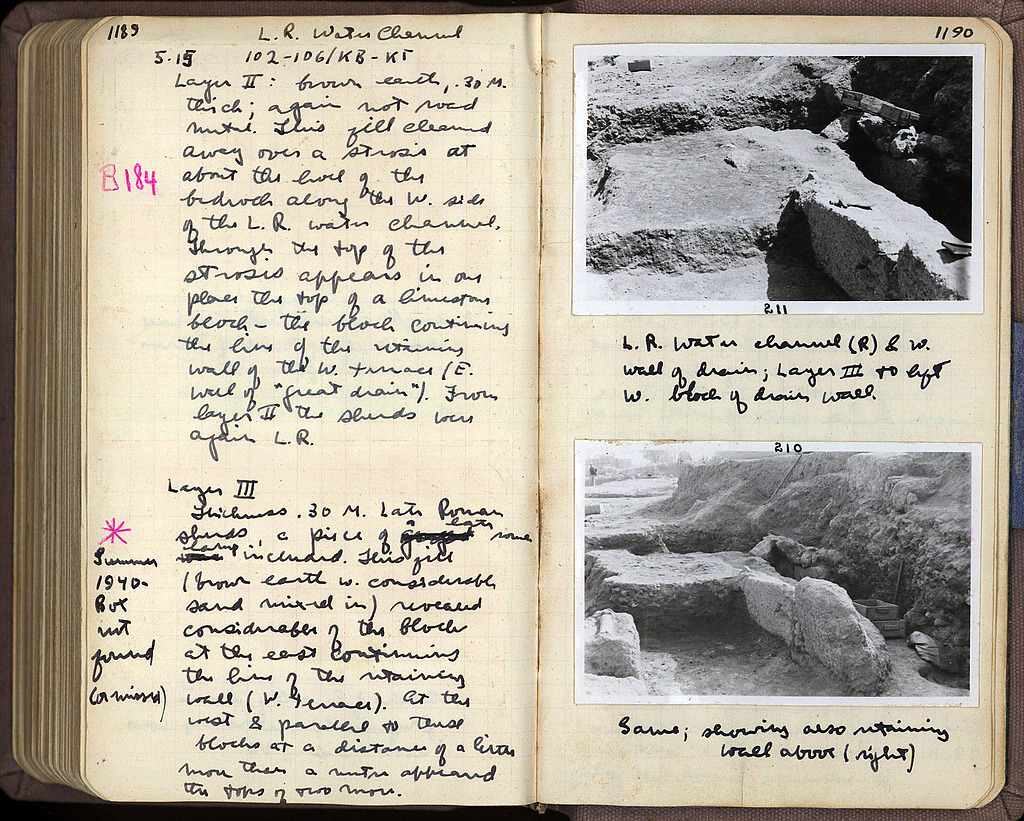 1189
L. R. Water Channel
5·15 102-106/KB-KΓ
Layer II: brown earth, .30 M.
thick; again not road
metal. This fill cleared
away over a strosis at
about the level of the
bedrock along the W. side
of the L.R. water channel.
Through the top of the
strosis appears in one
place the top of a limestone
block – the block continuing
the line of the retaining
wall of the W. terrace (E.
wall of "great drain"). From
layer II the sherds were
again L.R.
B184
Layer III
Thickness .30 M. Late Roman
sherds, a piece of a late roman
lamp included. This fill
(brown earth w. considerable
sand mixed in) revealed
considerable of the block
at the east continuing
the line of the retaining
wall (W. Terrace). At the
west & parallel to these
blocks at a distance of a little
more than a metre appeared
the tops of two more.
*
Summer
1940-
Box
not
found
(or missed)
1190
211
L. R. Water channel (R) & W.
wall of drain; Layer III to left
W. block of drain wall.
210
Same; showing also retaining
wall above (right)